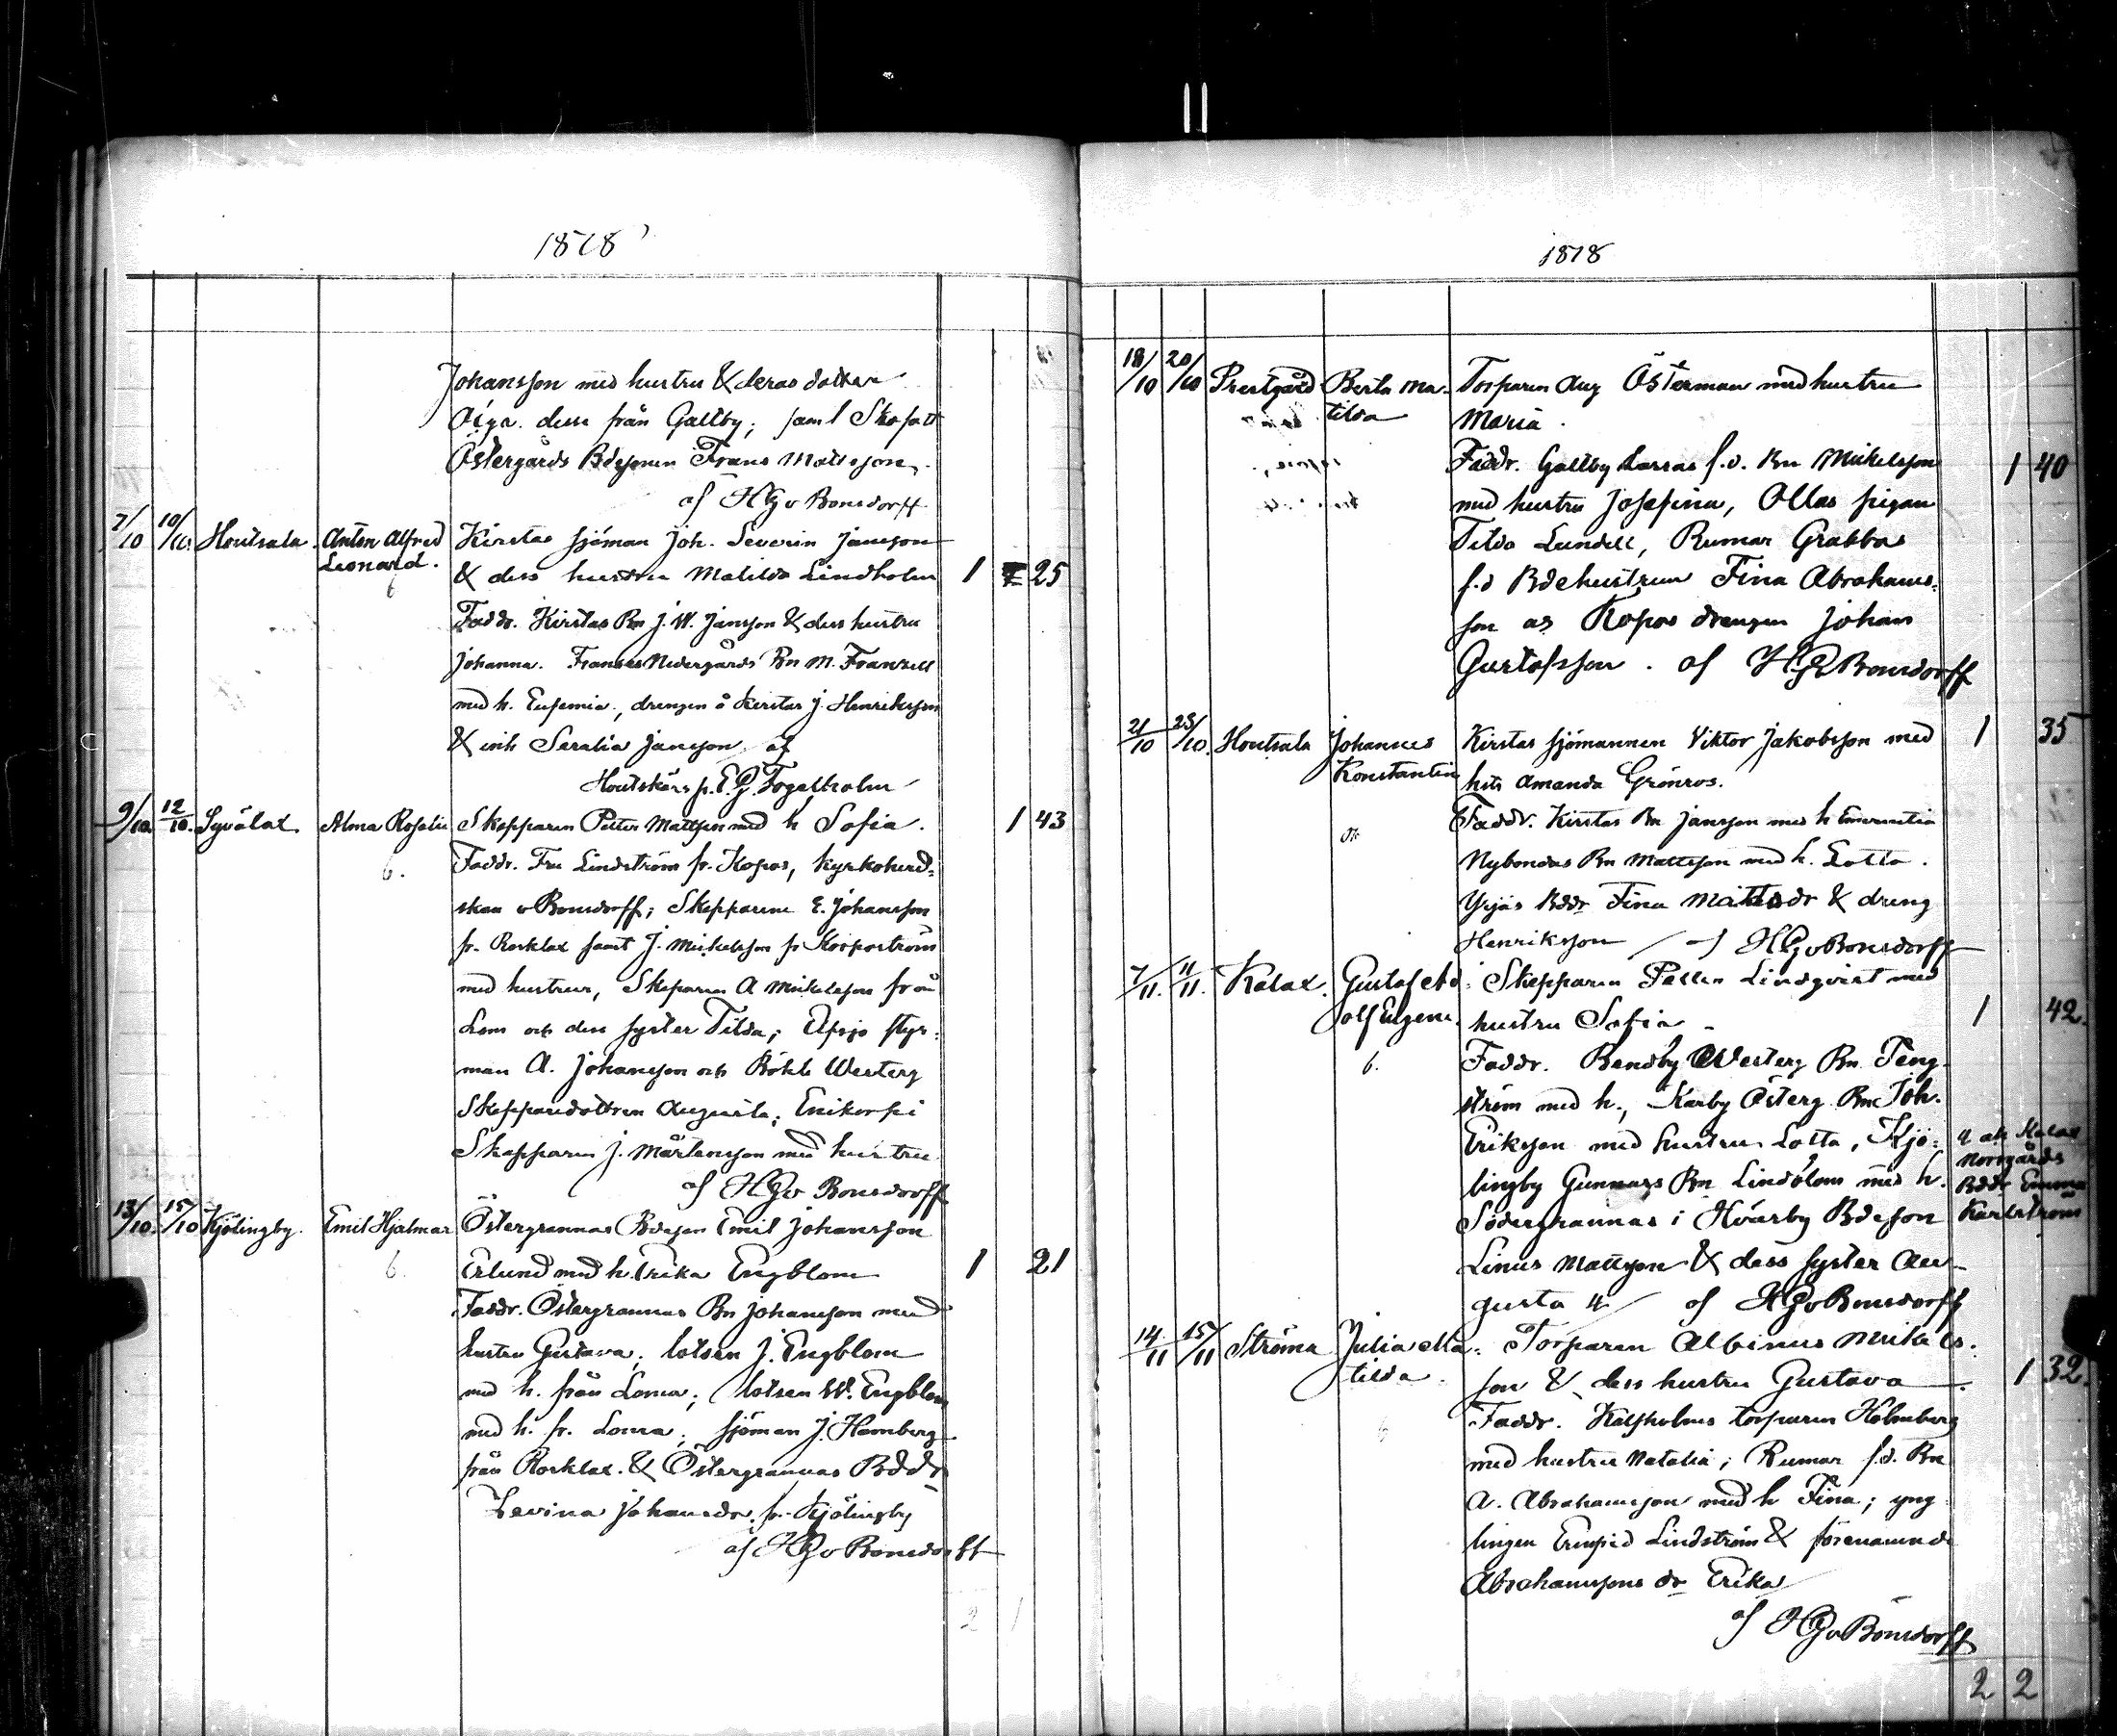 1878
Johansson med hustru & deras dotter
Olga dess från Galtby; samt
Östergårds Bdesonen Frans Mattsson
af HG v Bonsdorff
7/10 10/10 Houtsala Anton Alfred Kirstas sjöman Joh. Severin Jansson
Leonard. & dess hustru Matilda Lindholm 1 25
6
Faddr. Kirstas Bn J. W. Jansson & dess hustru
Johanna. Nedergårds Bn M. Franzell
med h. Eufemia, drengen å Kirstas J. Henriksson
& Seralia Jansson af
Houtskärs p. E. G. Fogelholm
9/10 12/10 Syvälax Alma Rosalie Skepparen Petter Mattsson med h Sofia. 1 43
6. Faddr. Fru Lindström fr. Kopos, kyrkoherd=
skan v Bonsdorff; Skepparene E. Johansson
fr. Rosklax samt J. Mickelsson fr Korpoström
med hustrur, Skeparen A Mickelsson från
Lom och dess syster Tilda; styr=
man A. Johansson och Westerg
Skeppardottren Augusta; Enikorpi
Skepparen J. Mårtensson med hustru
af HG v Bonsdorff
13/10 15/10 Kjölingby. Emil Hjalmar Östergrannas Bdeson Emil Johansson
6. Erlund med h. Erika Engblom 1 21
Faddr. Östergrannas Bn Johansson med
hustru Gustava; lotsen J. Engblom
med h. från Loma; lotsen W. Engblom
med h. fr. Loma; sjöman J. Homberg
från Rosklax. & Östergrannas Bddr
Levina Johansdr. fr. Kjölingby
af HG v Bonsdorff
2 1
1878
18/10 20/10 Prestgård Berta Ma- Torparen Aug Österman med hustru
tilda Maria.
Faddr. Galtby Larsas f.d. Bn Mickelsson 1 40
med hustru Josefina, Ollas pigan
Tilda Lundell, Rumar Grabbas
f.d Bdehustrun Fina Abrahams=
son as Kopos drengen Johan
Gustafsson. af HG v Bonsdorff
21/10 23/10 Houtsala Johannes Kirstas sjömannen Viktor Jakobsson med 1 35
Konstantin hus Amanda Grönros.
Faddr. Kirstas Bn Jansson med h Emerentia
Nybondas Bn Mattsson med h. Lotta.
Yrjäs Bddr Fina Mattsdr & dreng
Henriksson / af HG v Bonsdorff
7/11. 11/11. Kalax. Gustaf Ad= Skepparen Petter Lindqvist med
olf Eugen. hustru Sofia 1 42.
6. Faddr. Bendby Westerg Bn Teng-
ström med h., Karby Österg Bn Joh.
Eriksson med hustru Lotta, Kjö=
lingby Gunnars Bn Lindblom med h.
Södergrannas i Hvarby Bdeson
Linus Mattsson & dess syster Au-
gusta # af HG v Bonsdorff
# ah Kalax
Norrgårds
Bddr Emma
Karlström
14/11 15/11 Ströma Julia Ma= Torparen Albinus Mickels=
tilda. son & dess hustru Gustava. 1 32.
6 Faddr. Kalfholms torparen Holmberg
med hustru Natalia; Rumar f.d. Bn
A. Abrahamsson med h Fina; yng
lingen Lindström & förenamnde
Abrahamssons dr Erika
af HG v Bonsdorff
2 2